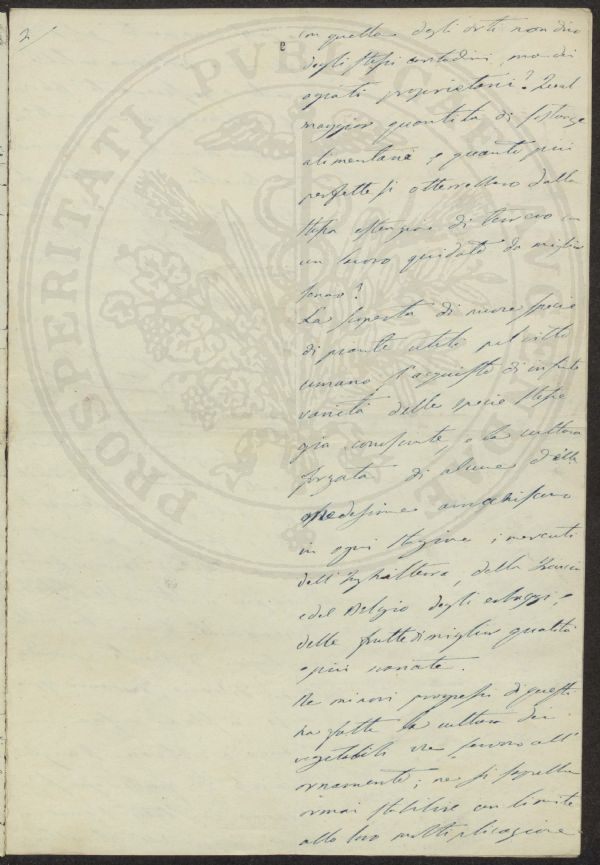 2
con quella degli orti non dico
degli stessi contadini, ma dei
agiati proprietarii? Qual
maggior quantità di sostanze
alimentarie e quanto più
perfette si otterrebbero dalla
stessa estensione di terreno con
un lavoro guidato da miglior
senno?
La scoperta di nuove specie
di piante utili pel vitto
umano, l'acquisto di infinite
varietà delle specie stesse
già conosciute, e la cultura
forzata di alcune delle
medesime arricchiscono
in ogni stagione i mercati
dell'Inghilterra, della Francia
e del Belgio degli erbaggi, e
delle frutte di miglior qualità
e più svariate.
Ne minori progressi di questi
ha fatto la cultura dei
vegetabili che servono all'
ornamento; ne si saprebbe
ormai stabilire un limite
alla loro moltiplicazione
PROSPERITATI PUBLICAE AUGENDAE